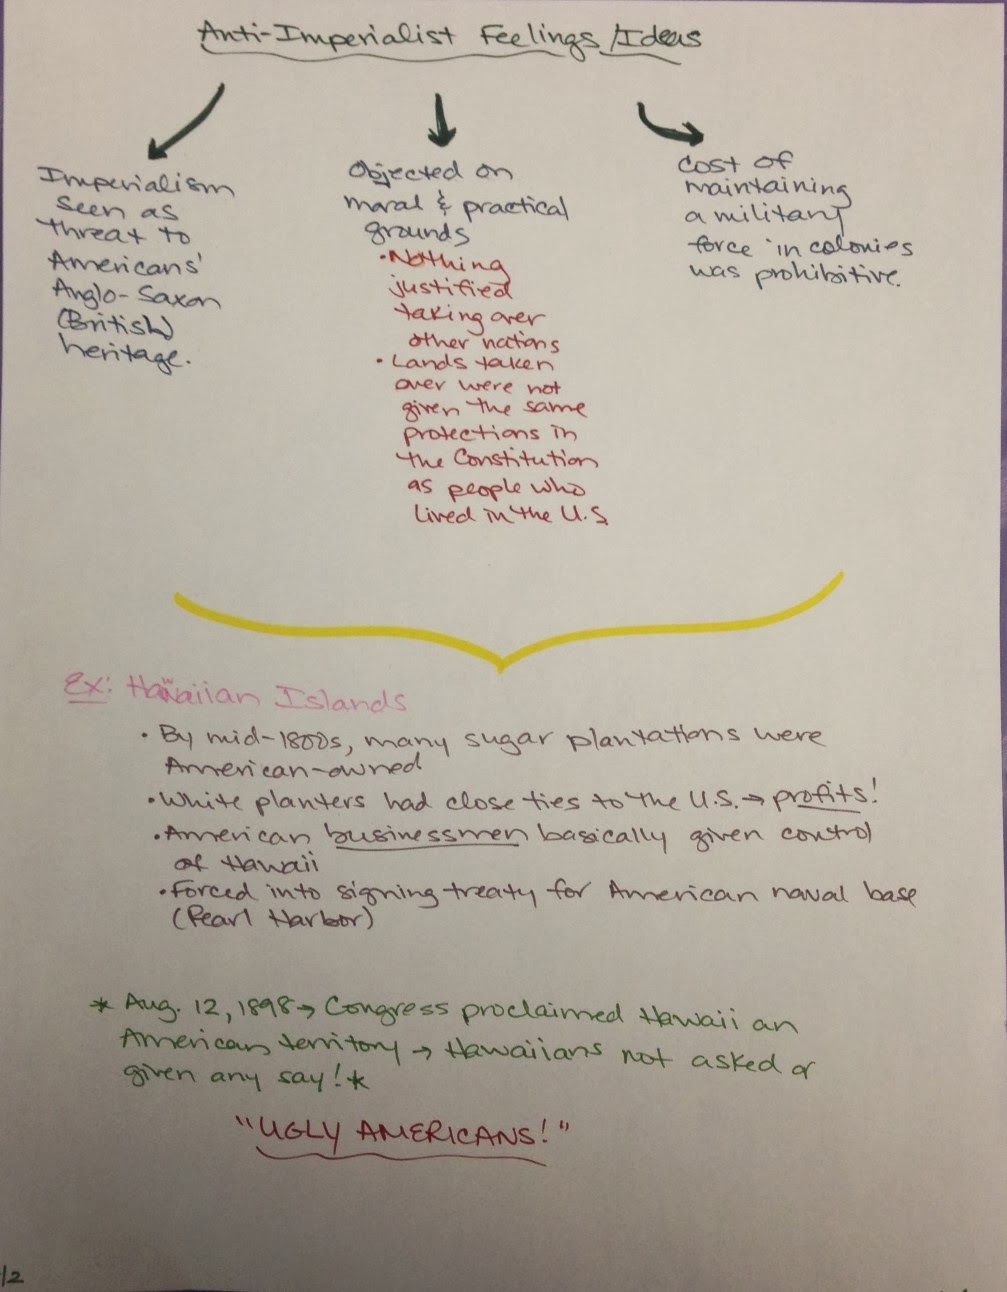 Anti-Imperialist Feelings/Ideas
Imperialism
seen as
threat to
Americans'
Anglo-Saxon
(British)
heritage.
Objected on
moral & practical
grounds
• Nothing
justified
taking over
other nations
• Lands taken
over were not
given the same
protections in
the Constitution
as people who
lived in the U.S
Cost of
maintaining
a military
force in colonies
was prohibitive.
Ex: Hawaiian Islands
• By mid-1800s, many sugar plantations were
American-owned
• White planters had close ties to the U.S. → profits!
• American businessmen basically given control
of Hawaii
• Forced into signing treaty for American naval base
(Pearl Harbor)
* Aug. 12, 1898 → Congress proclaimed Hawaii an
American territory → Hawaiians not asked or
given any say! *
"UGLY AMERICANS!"